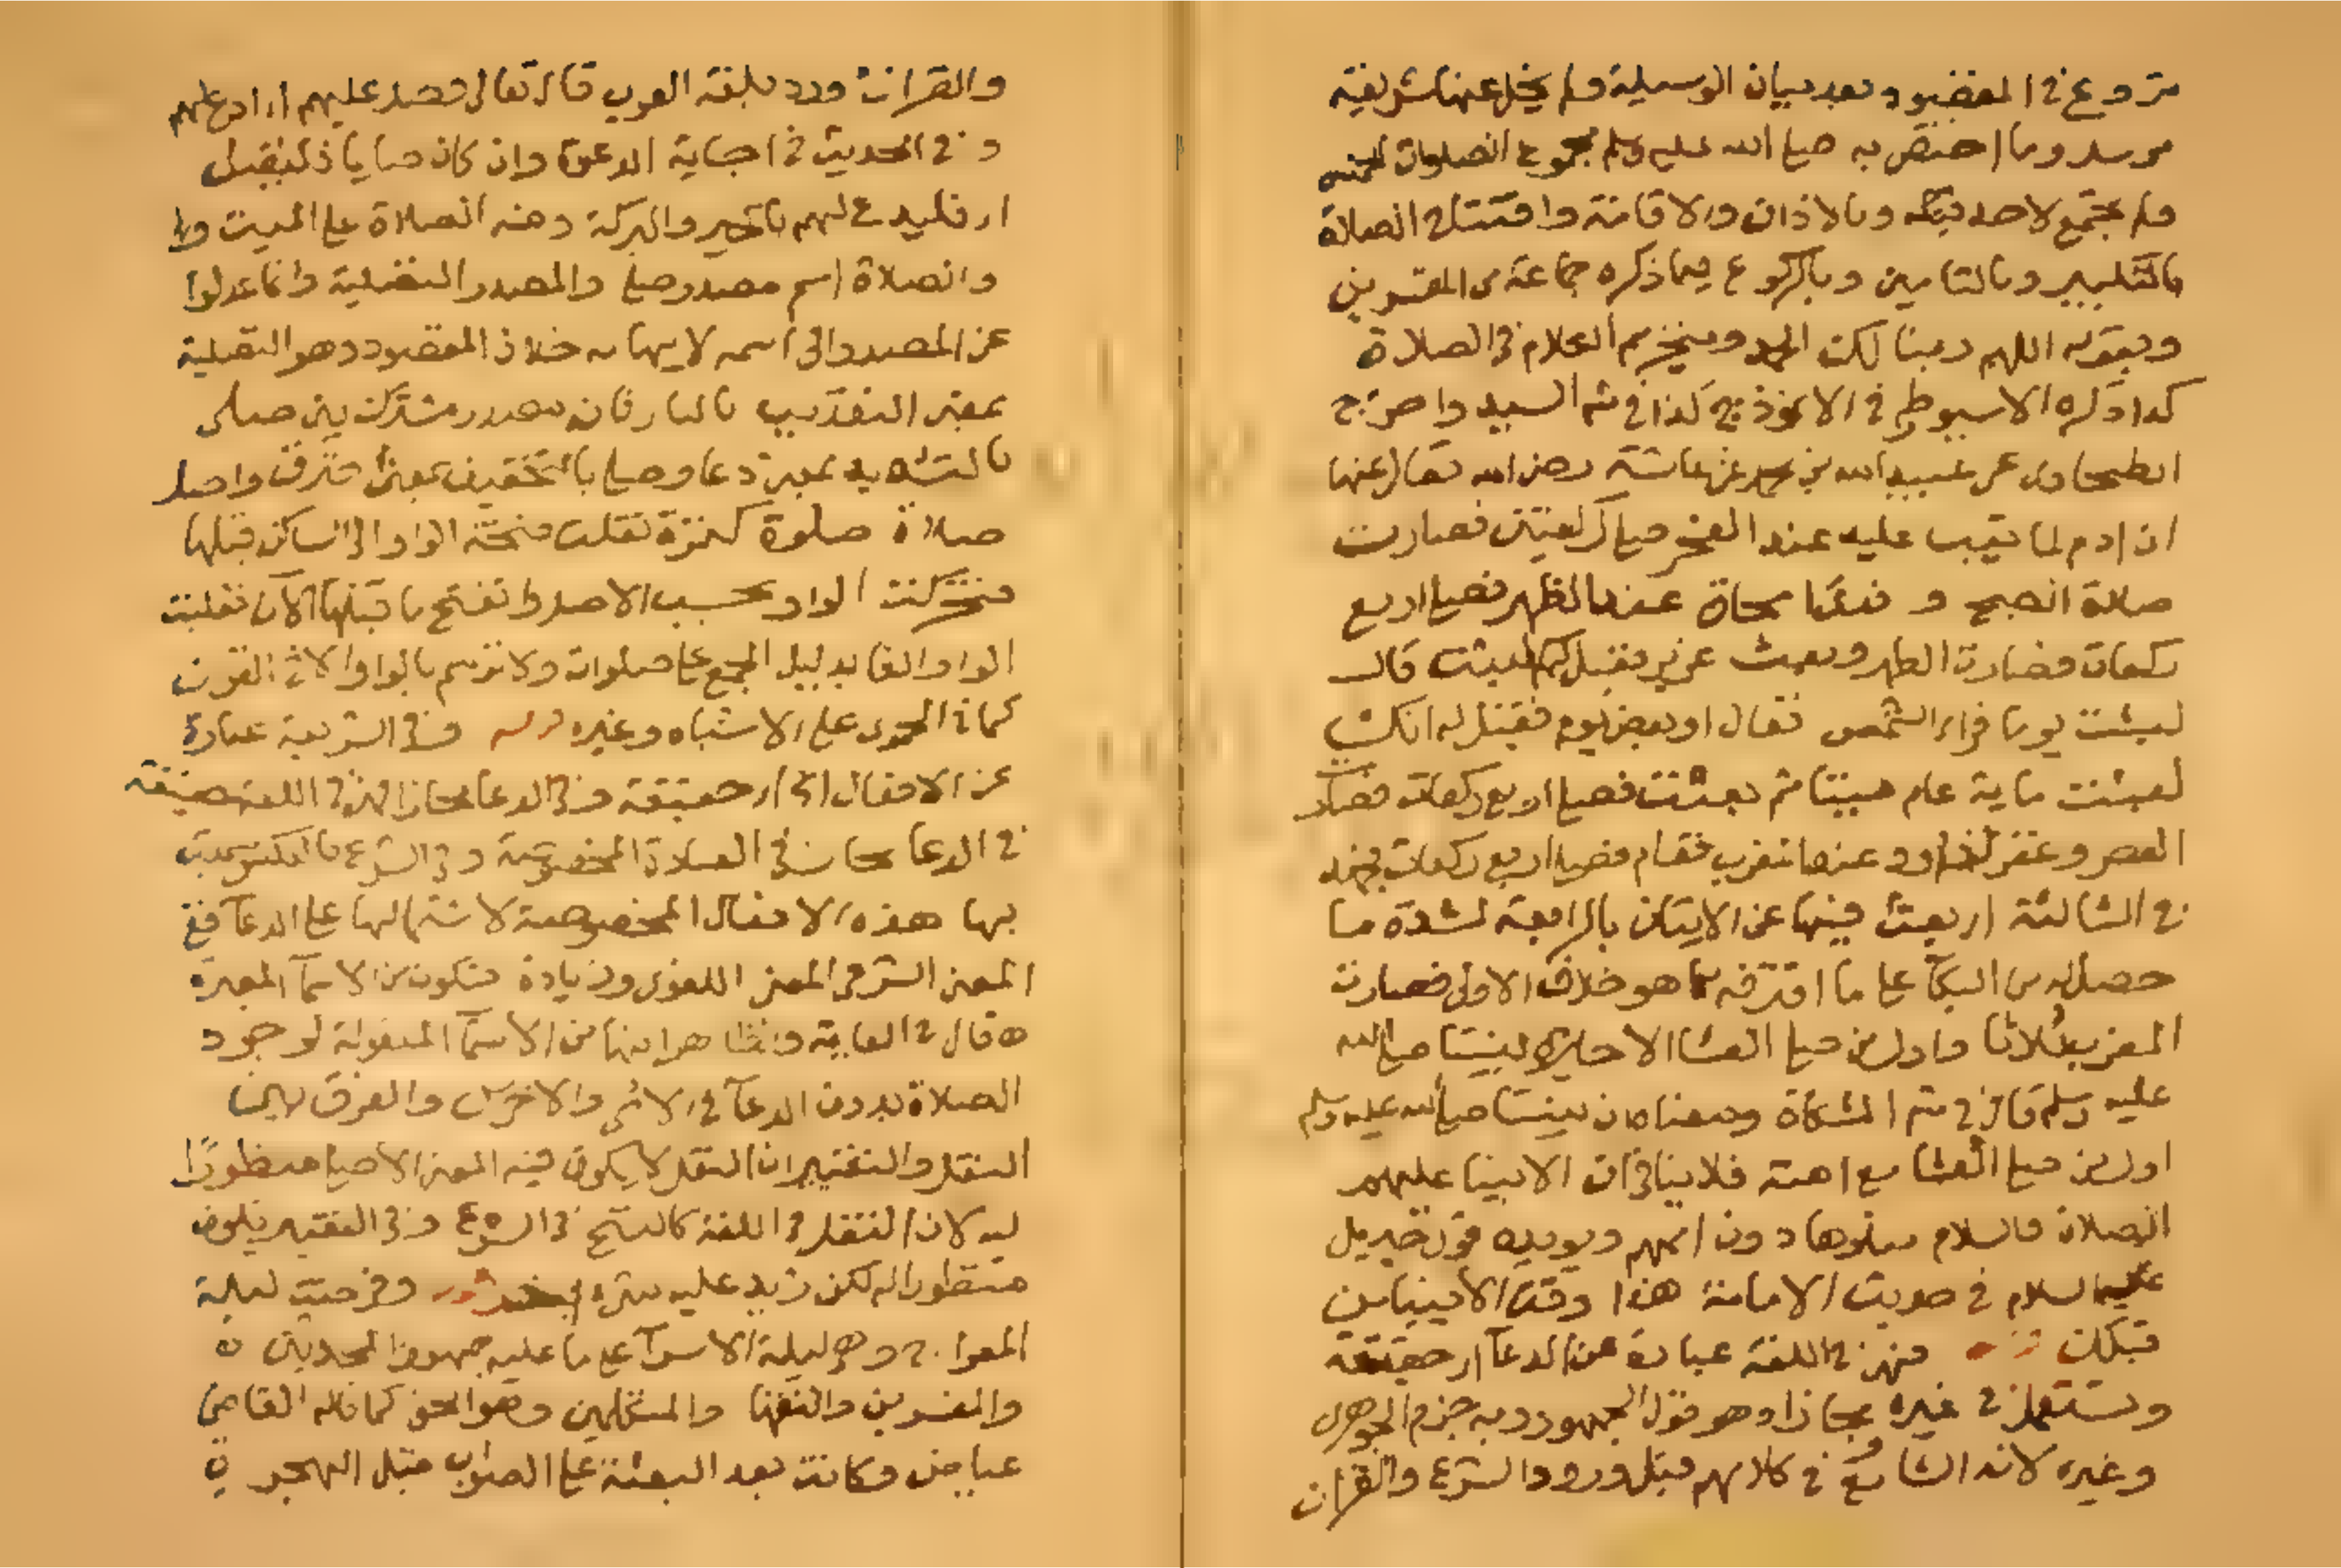 شروع في المقصود بعد بيان الوسيلة ولم يخل عنها شريعة
مرسل وما اختص به صلى الله عليه وسلم مجموع الصلوات الخمس
ولم تجتمع لاحد قبله وبالاذان والاقامة وافتتاح الصلاة
بالتكبير وبالتامين وبالركوع فيما ذكره جماعة من المفسرين
وبقوله اللهم ربنا لك الحمد وبتحريم الكلام في الصلاة
كذا ذكره الاسيوطي في الانموذج كذا في شم السيد واخرج
الطحاوي عن عبيد الله بن محمد عن عائشة رضي الله تعالى عنها
ان ادم لما تيب عليه عند الفجر صلى ركعتين فصارت
صلاة الصبح و عند الظهر فصلى اربع
ركعات فصارت الظهر وبعث عزير فقيل كم لبثت قال
لبثت يوما فراى الشمس فقال او بعض يوم فقيل له انك
لبثت ماية عام ميتا ثم بعثت فصلى اربع ركعات فصارت
العصر وغفر لداود عند المغرب فقام فصلى اربع ركعات فجهد
في الثالثة اي تعب فيها عن الاتيان بالرابعة لشدة ما
حصل له من البكا على ما اقترفه مما هو خلاف الاولى فصارت
المغرب ثلاثا واول من صلى العشا الاخيرة نبينا صلى الله
عليه وسلم قال في شم المشكاة ومعناه ان نبينا صلى الله عليه وسلم
اول من صلى العشا مع امته فلا ينافي ان الانبيا عليهم
الصلاة والسلام صلوها دون اممهم ويويده قول جبريل
عليه السلام في حديث الامامة هذا وقت الانبيا من
قبلك فهي في اللغة عبارة عن الدعا اي حقيقة
وتستعمل في غيره مجازا وهو قول الجمهور وبه جزم الجوهري
وغيره لانه الشائع في كلامهم قبل ورود الشرع والقران
والقران ورد بلغة العرب قال تعالى وصل عليهم اي ادع لهم
وفي الحديث في اجابة الدعوة وان كان صايما فليصل
اي فليدع لهم بالخير والبركة ومنه الصلاة على الميت
والصلاة اسم مصدر صلى والمصدر التصلية وانما عدلوا
عن المصدر الى اسمه لايهامه خلاف المقصود وهو التصلية
بمعنى التعذيب بالنار فانه مصدر مشترك بين صلى
بالتشديد بمعنى دعا وصلى بالتخفيف بمعنى حرق واصل
صلاة صلوة كتمرة نقلت فتحة الواو الى الساكن قبلها
فتحركت الواو بحسب الاصل وانفتح ما قبلها الان فقلبت
الواو الفا بدليل الجمع على صلوات ولا ترسم بالواو الا في القران
كما في الحموي على الاشباه وغيره قوله وفي الشريعة عبارة
عن الافعال الخ اي حقيقة وفي الدعا مجازا فهي في اللغة حقيقة
في الدعا مجاز في العبادة المخصوصة وفي الشرع بالعكس
بها هذه الافعال المخصوصة لاشتمالها على الدعا ففي
المعنى الشرعي المعنى اللغوي وزيادة فتكون من الاسما المغيرة
قال في الغاية والظاهر انها من الاسما المنقولة لوجود
الصلاة بدون الدعا في الامي والاخرس والفرق بين
النقل والتغيير ان النقل لا يكون فيه المعنى الاصلي منظورا
اليه لان النقل في اللغة كالنسخ في الشرع وفي التغيير يكون
منظورا له لكن زيد عليه شيء اخر قوله وفرضت ليلة
المعراج وهي ليلة الاسرا على ما عليه جمهور المحدثين
والمفسرين والفقها والمتكلمين وهو الحق كما قاله القاضي
عياض وكانت بعد البعثة على الصواب قبل الهجرة